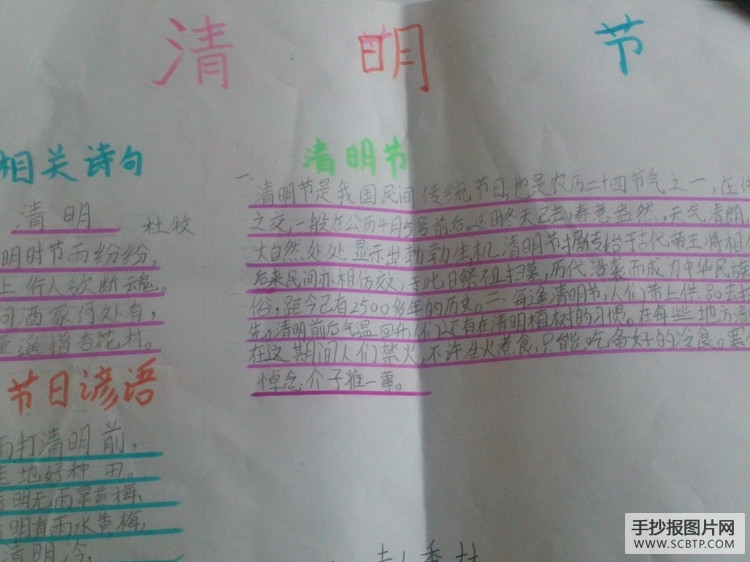 清明节
相关诗句
清明
杜牧
明时节雨纷纷,
上行人欲断魂。
问酒家何处有,
童遥指杏花村。
节日谚语
雨打清明前,
地好种田。
清明无雨旱黄梅,
清明有雨水黄梅,
清明冷,
清明节
一、清明节是我国民间传统节日,也是农历二十四节气之一,在
之交,一般在公历4月5号前后。冬天已去,春意盎然,天气清朗,
大自然处处显示出勃勃生机。清明节据传始于古代帝王将相
后来民间亦相仿效,于此日祭祖扫墓,历代沿袭而成为中华民族
俗,距今已有2500多年的历史。二、每逢清明节,人们节上供品去
先,清明前后气温回升,人们还有在清明植树的习惯。在每些地方清
在这期间人们禁火,不许生火煮食,只能吃备好的冷食。
悼念介子推一事。
手抄报图片网
WWW.SCBTP.COM